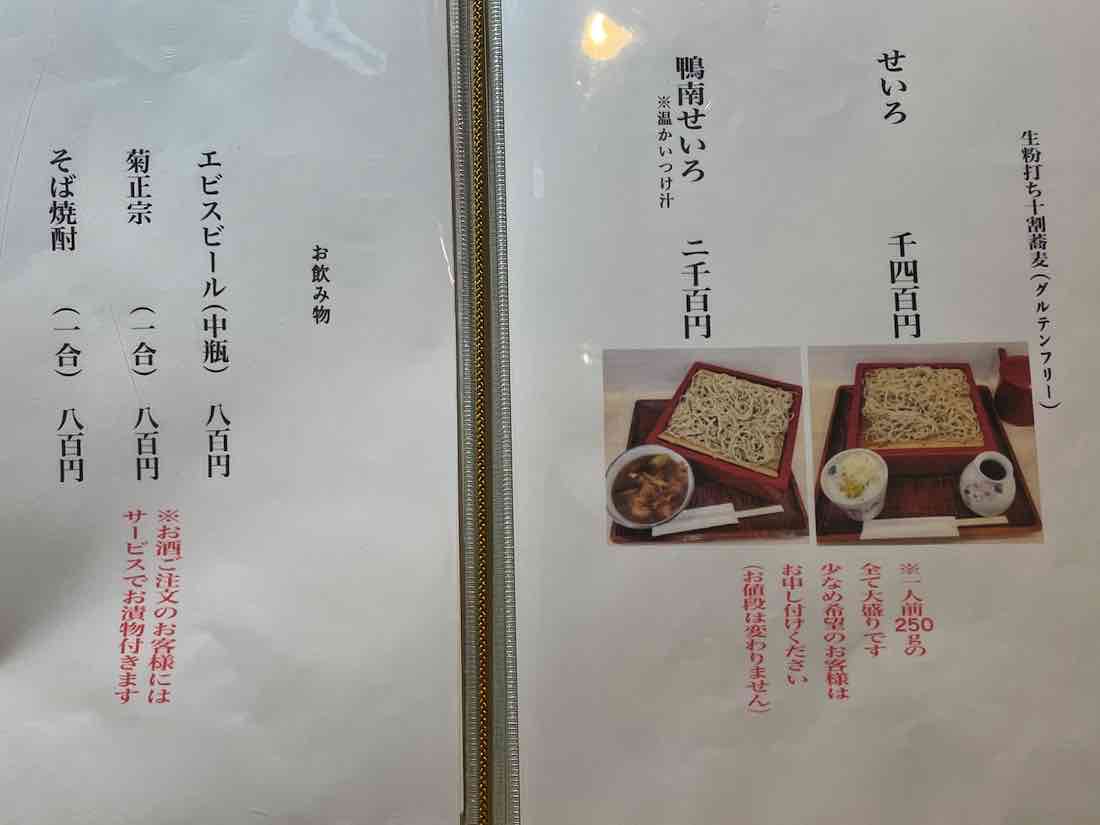 生粉打ち十割蕎麦(グルテンフリー)
せいろ 千四百円
鴨南せいろ 二千百円
※温かいつけ汁
※一人前250gの
全て大盛りです
少なめ希望のお客様は
お申し付けください
(お値段は変わりません)
お飲み物
エビスビール(中瓶) 八百円
菊正宗 (一合) 八百円
そば焼酎 (一合) 八百円
※お酒ご注文のお客様には
サービスでお漬物付きます